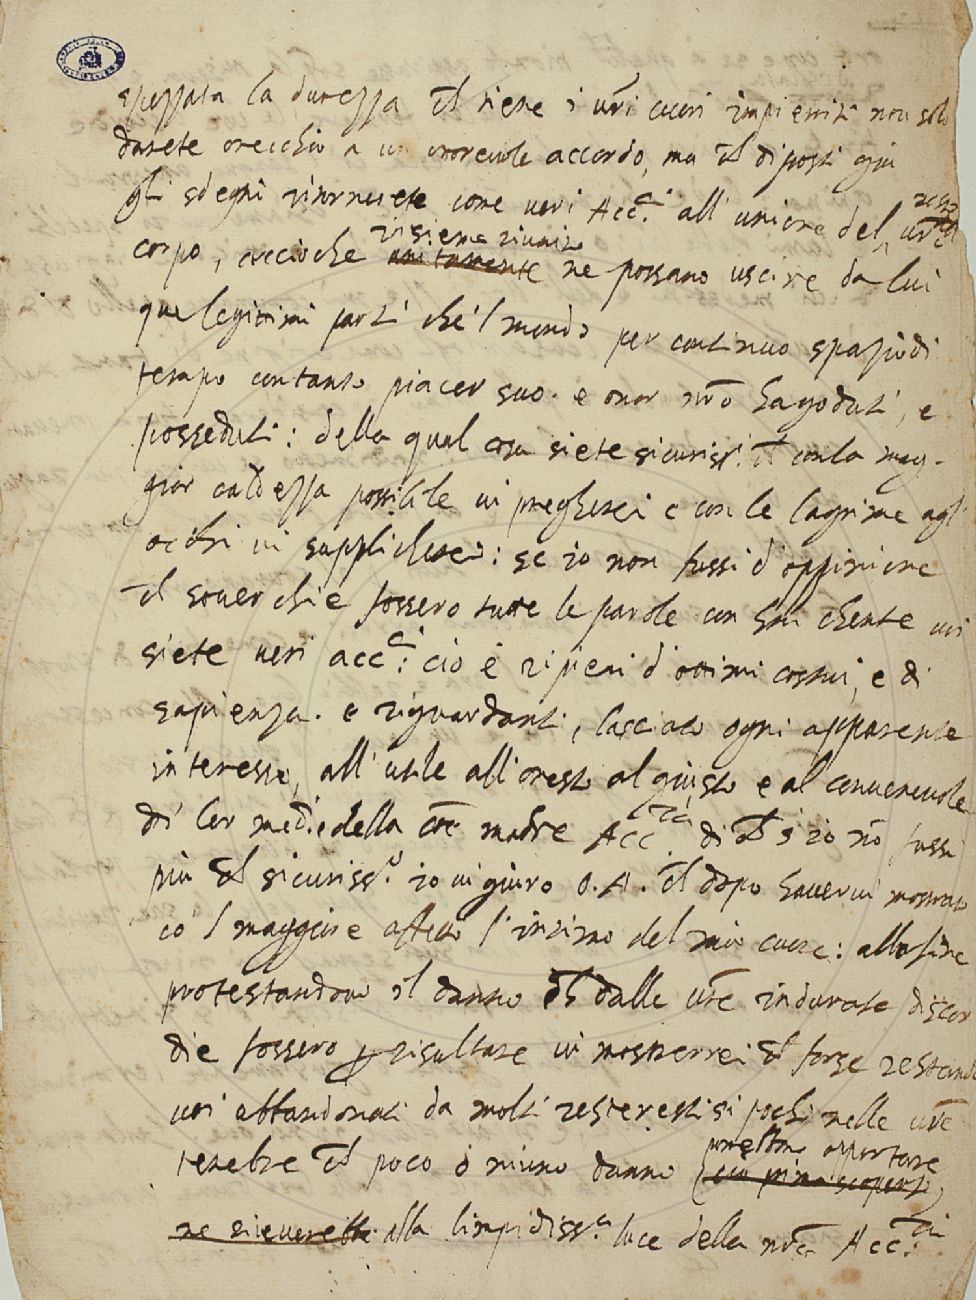 spezzata la durezza che tiene i vri cuori impietriti non solo
darete orecchio a un onorevole accordo, ma che diposti giu
gli sdegni ritornerete come veri Acc.ci all' unione del vro
corpo, accioche insieme riuniti unitamente ne possano uscire da lui
que legitimi parti che'l mondo per continuo spazio di
tempo con tanto piacer suo. e onor nro ha goduti, e
posseduti: della qual cosa siete sicuriss.i che con la mag-
gior caldezza possibile vi pregherei e con le lagrime agli
occhi vi supplicherei: se io non fussi d'oppinione
che soverchie fossero tutte le parole con voi
siete veri acc.ci: cio è ripieni d'ottimi costumi, e di
sapienza. e riguardanti, lasciato ogni apparente
interesse, all'utile all'onesto al giusto e al convenevole
di lor medi e della coe madre Acc.ia di che s'io nō fussi
piu che sicuriss.o io vi giuro O. A. che dopo havervi mostrato
co'l maggiore affetto l'intimo del mio cuore: alla fine
protestandovi il danno che dalle vre indurate discor
die fossero per risultare vi mosterrei che forse restando
voi abbandonati da molti resteresti si pochi nelle vre
tenebre che poco o niuno danno potreste apportare (cio prima scoperti)
ne ricevereste alla limpidiss.a luce della nra Acc.ia